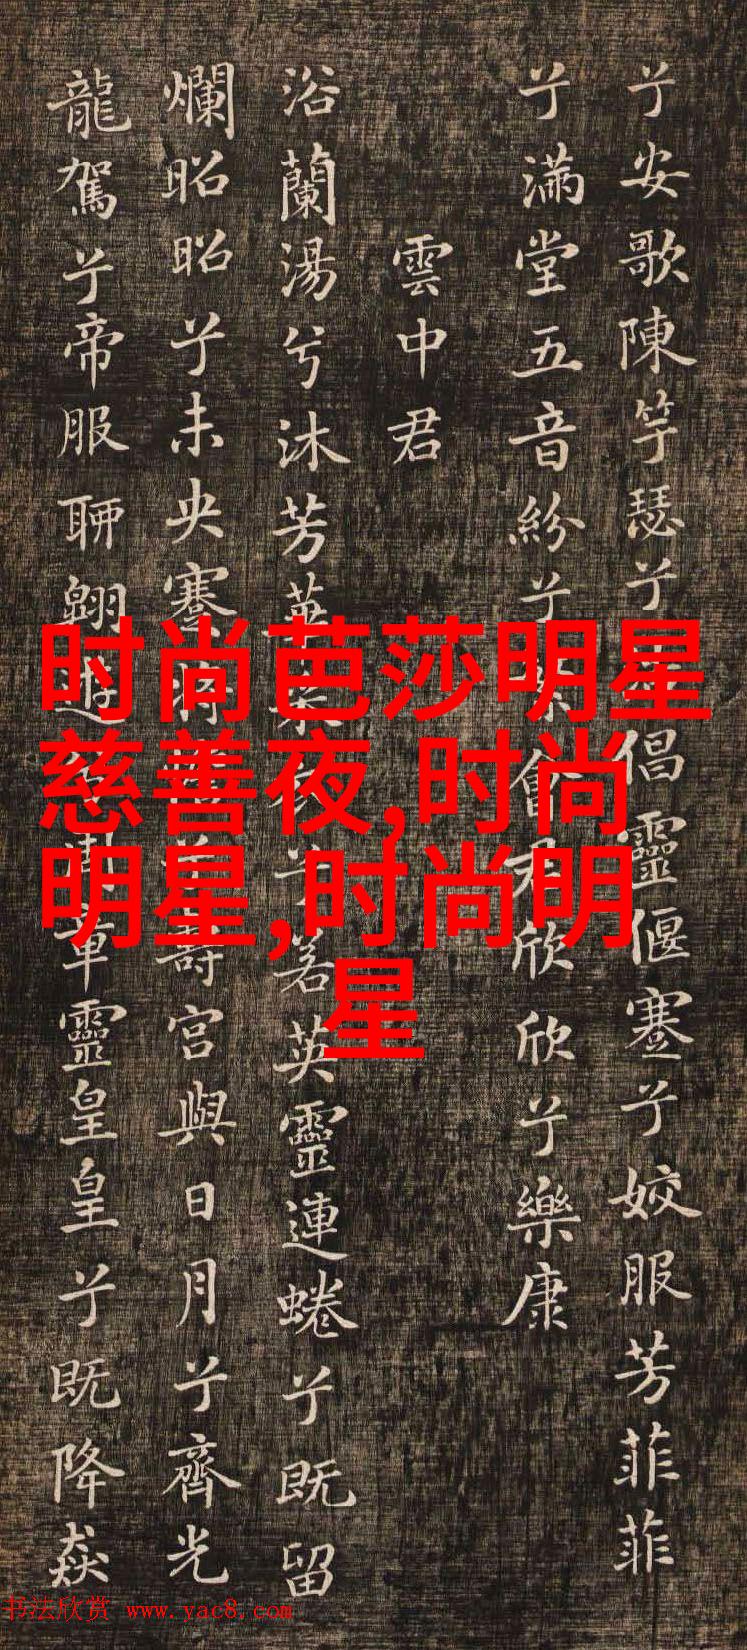 兮安歌陳竽瑟兮倡靈偃蹇兮姣服芳菲菲
兮滿堂五音紛兮繁會君欣欣兮樂康
雲中君
浴蘭湯兮沐芳華兮若英靈連蜷兮既留
爛昭昭兮未央蹇將兮壽宮與日月兮齊光
龍駕兮帝服聊翱遊兮周章靈皇皇兮既降猋
时尚芭莎明星
慈善夜,时尚
明星,时尚明
星
书法欣赏 www.yac8.com